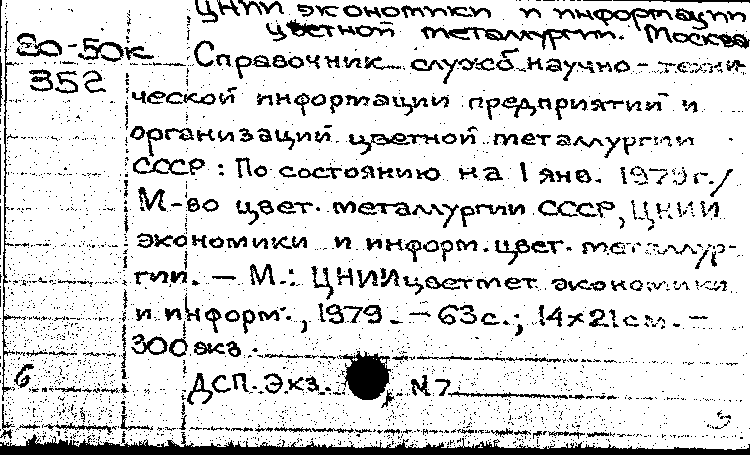 ЦНИИ экономики и информации
цветной металлургии. Москва
80-50к
352
Справочник служб научно-техни-
ческой информации предприятий и
организаций цветной металлургии
СССР : По состоянию на 1 янв. 1979 г./
М-во цвет. металлургии СССР, ЦНИИ
экономики и информ. цвет. металлур-
гии. — М.: ЦНИИцветмет экономики
и информ., 1979. — 63 с.; 14×21 см. —
300 экз.
6
ДСП. Экз. N 7